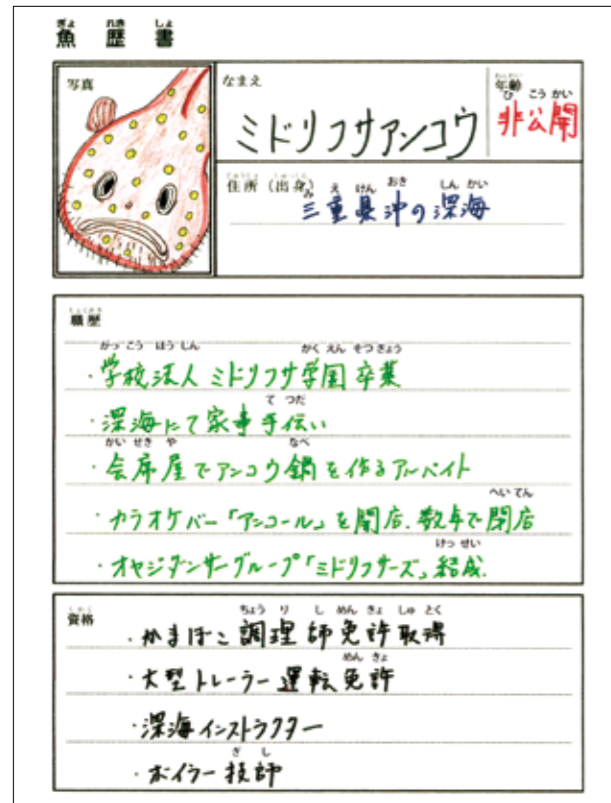 魚歴書
写真
なまえ
ミドリフサアンコウ
年齢
非公開
住所(出身)
三重県沖の深海
職歴
・学校法人 ミドリフサ学園 卒業
・深海にて家事手伝い
・会席屋でアンコウ鍋を作るアルバイト
・カラオケバー「アンコール」を開店.数年で閉店
・オヤジダンサーグループ「ミドリフサーズ」結成.
資格
・かまぼこ調理師免許取得
・大型トレーラー運転免許
・深海インストラクター
・ボイラー技師